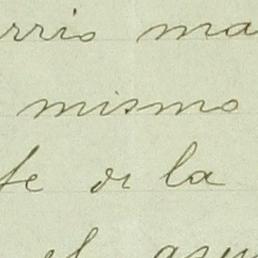 rrio ma
mismo
te de la
el asun